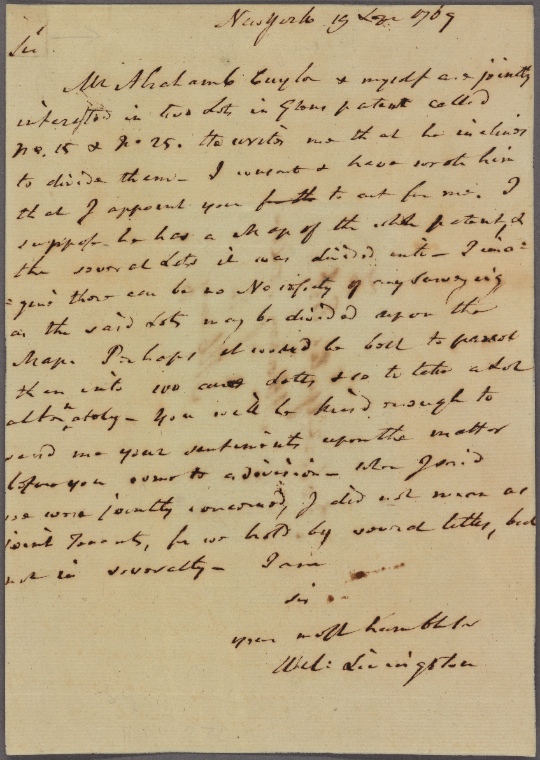 New York 19 1769
Sir
Mr Abraham C Cuyler & myself are jointly
interested in two Lots in Glens patent called
No. 15 & No 25. He writes me that he inclines
to divide them – I consent & have wrote him
that I appoint you to act for me. I
suppose he has a Map of the whole patent, &
the several Lots it was divided into – I ima=
=gine there can be no Necessity of any surveying
as the said Lots may be divided upon the
Map. Perhaps it would be best to parcel
them into 100 acre Lotts & so to take a Lot
alternately – You will be kind enough to
send me your sentiments upon the matter
before you come to a division – when I said
we were jointly concerned, I did not mean as
joint Tenants, for we hold by several titles, but
not in severalty – I am
Sir
your most humble Sr
Wil: Livingston